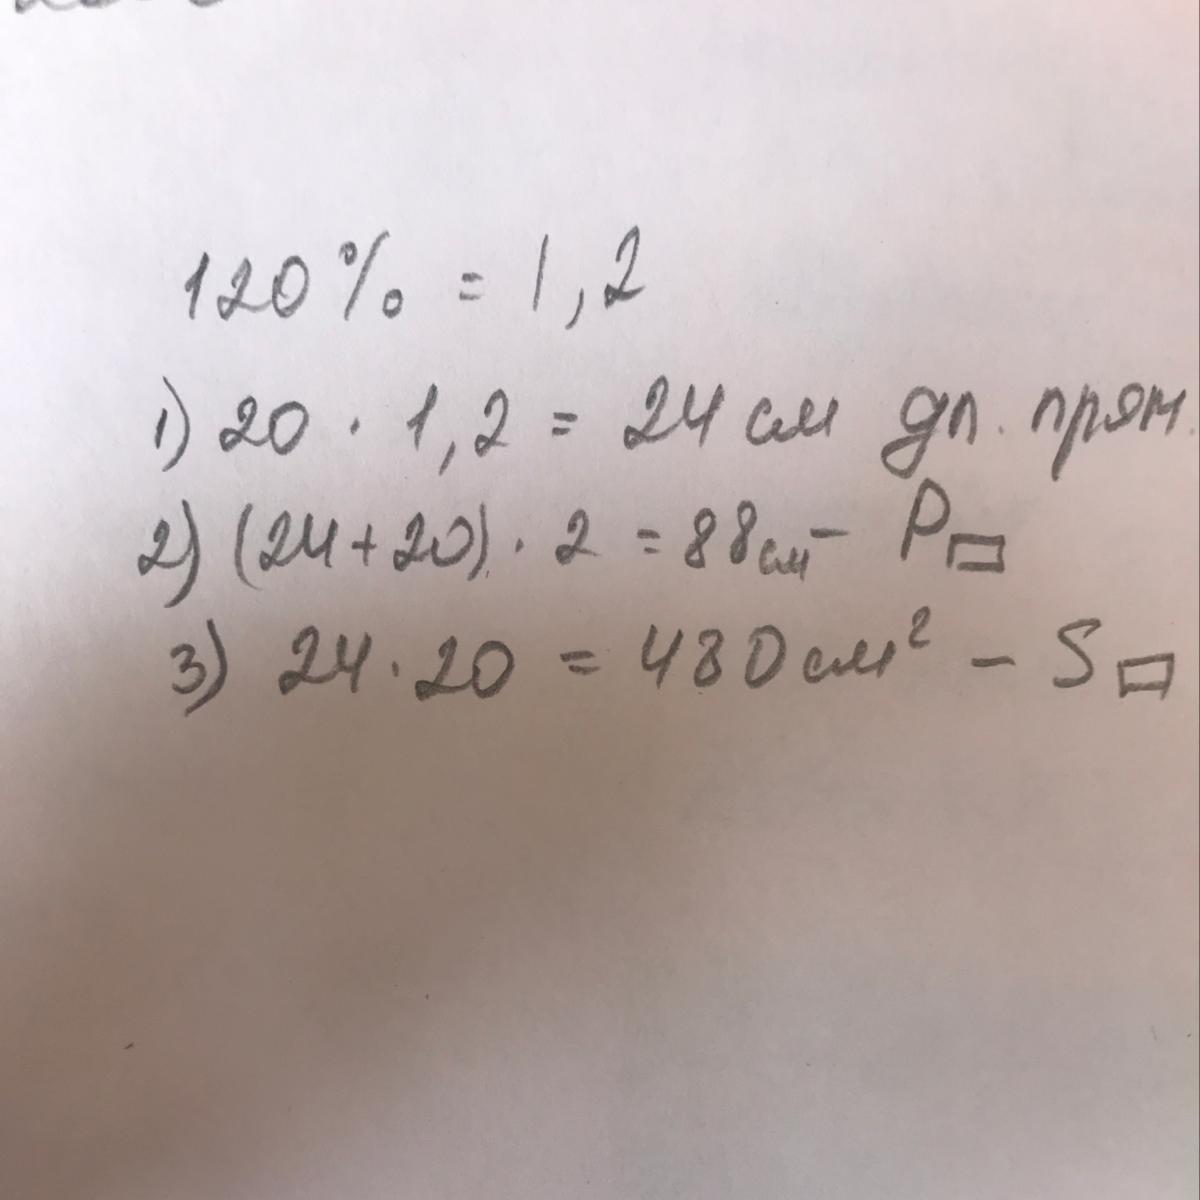 120% = 1,2
1) 20 · 1,2 = 24 см дл. прям.
2) (24+20) · 2 = 88см - P▭
3) 24 · 20 = 480 см² - S▭